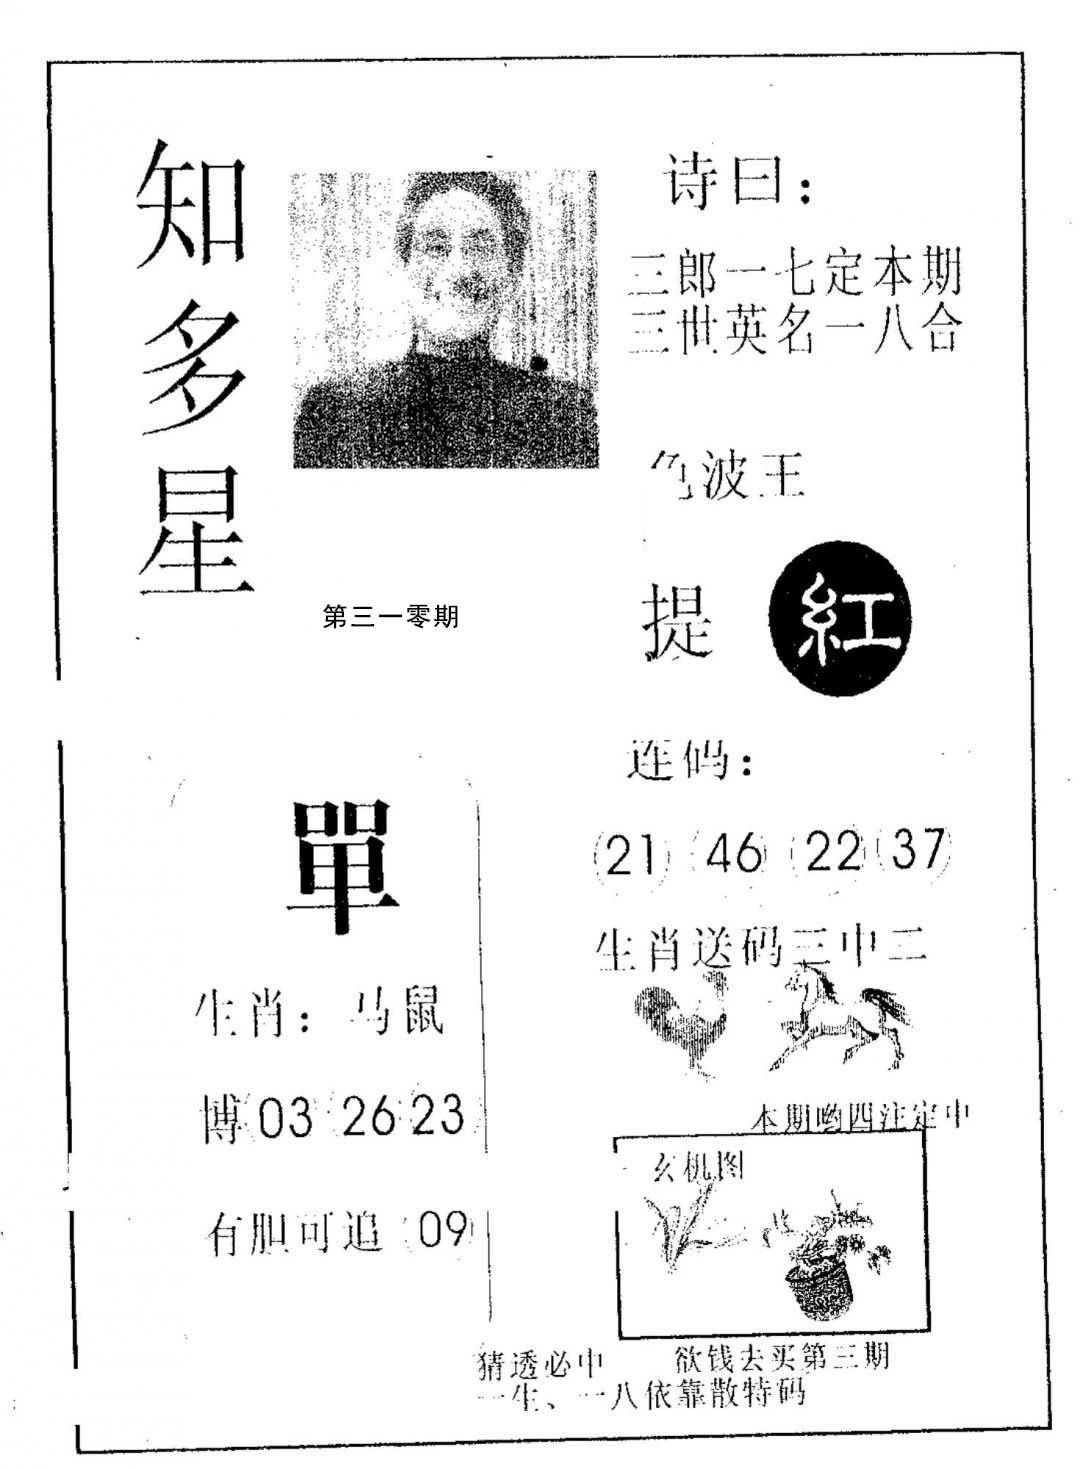 知多星
诗曰：
三郎一七定本期
三世英名一八合
色波王
提 紅
第三一零期
連码：
21 46 22 37
單
生肖：马鼠
博 03 26 23
有胆可追 09
生肖送码三中二
本期哟四注定中
玄机图
猜透必中 欲钱去买第三期
一生、一八依靠散特码